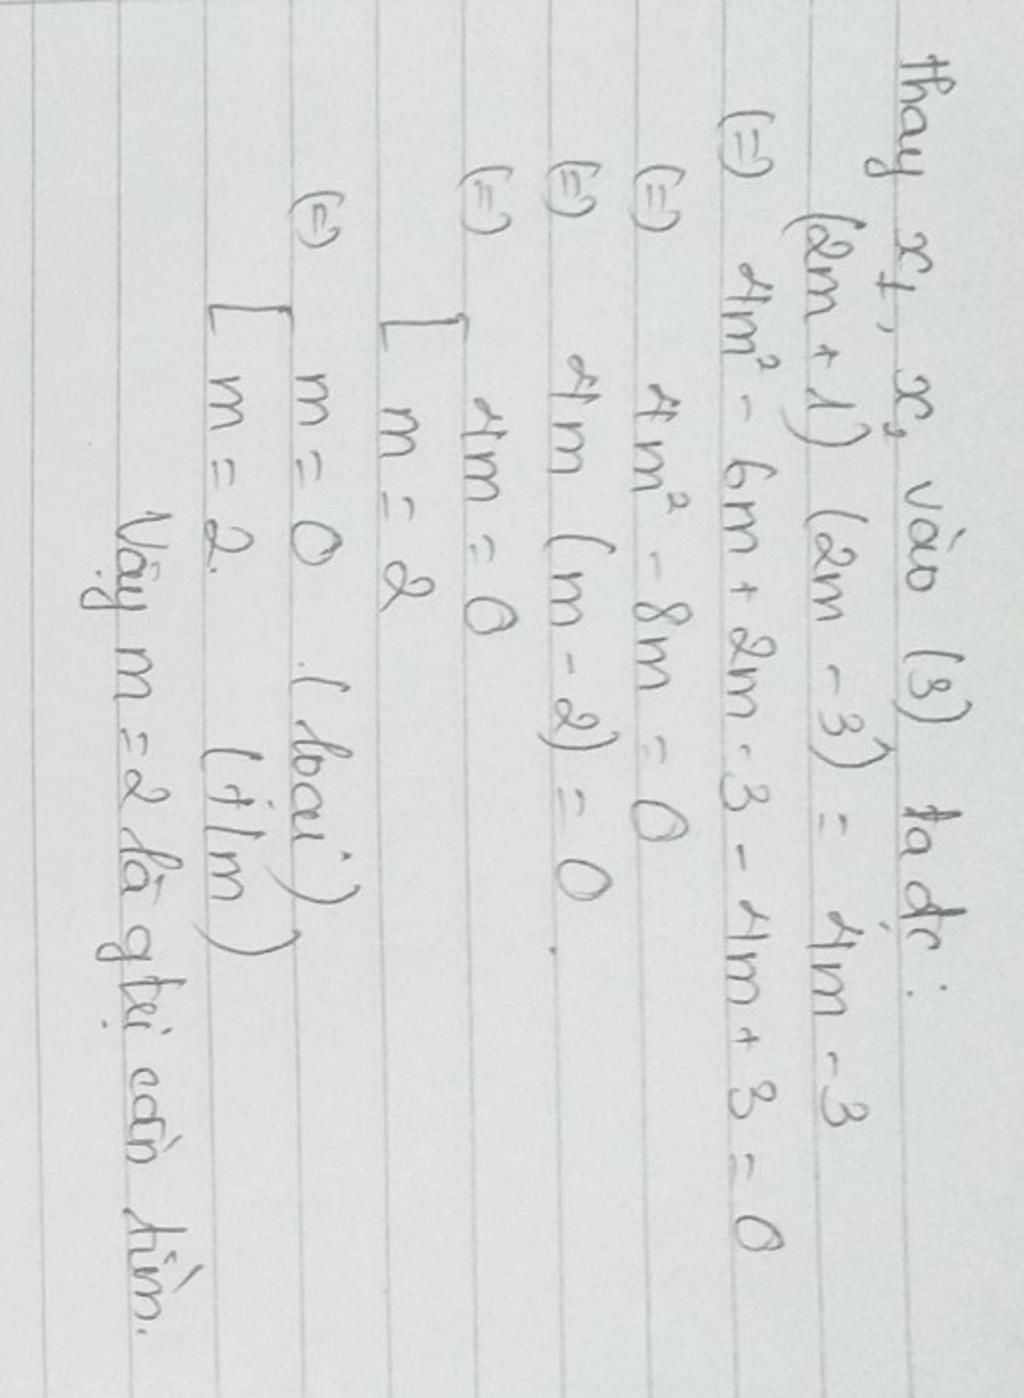 thay x₁, x₂ vào (3) ta đc:
(2m + 1) (2m - 3) = 4m - 3
(=) 4m² - 6m + 2m - 3 - 4m + 3 = 0
(=) 4m² - 8m = 0
(=) 4m (m - 2) = 0
(=) [ 4m = 0
m = 2
(=) [ m = 0 (loại)
m = 2 (t/m)
Vậy m = 2 là gtrị cần tìm.